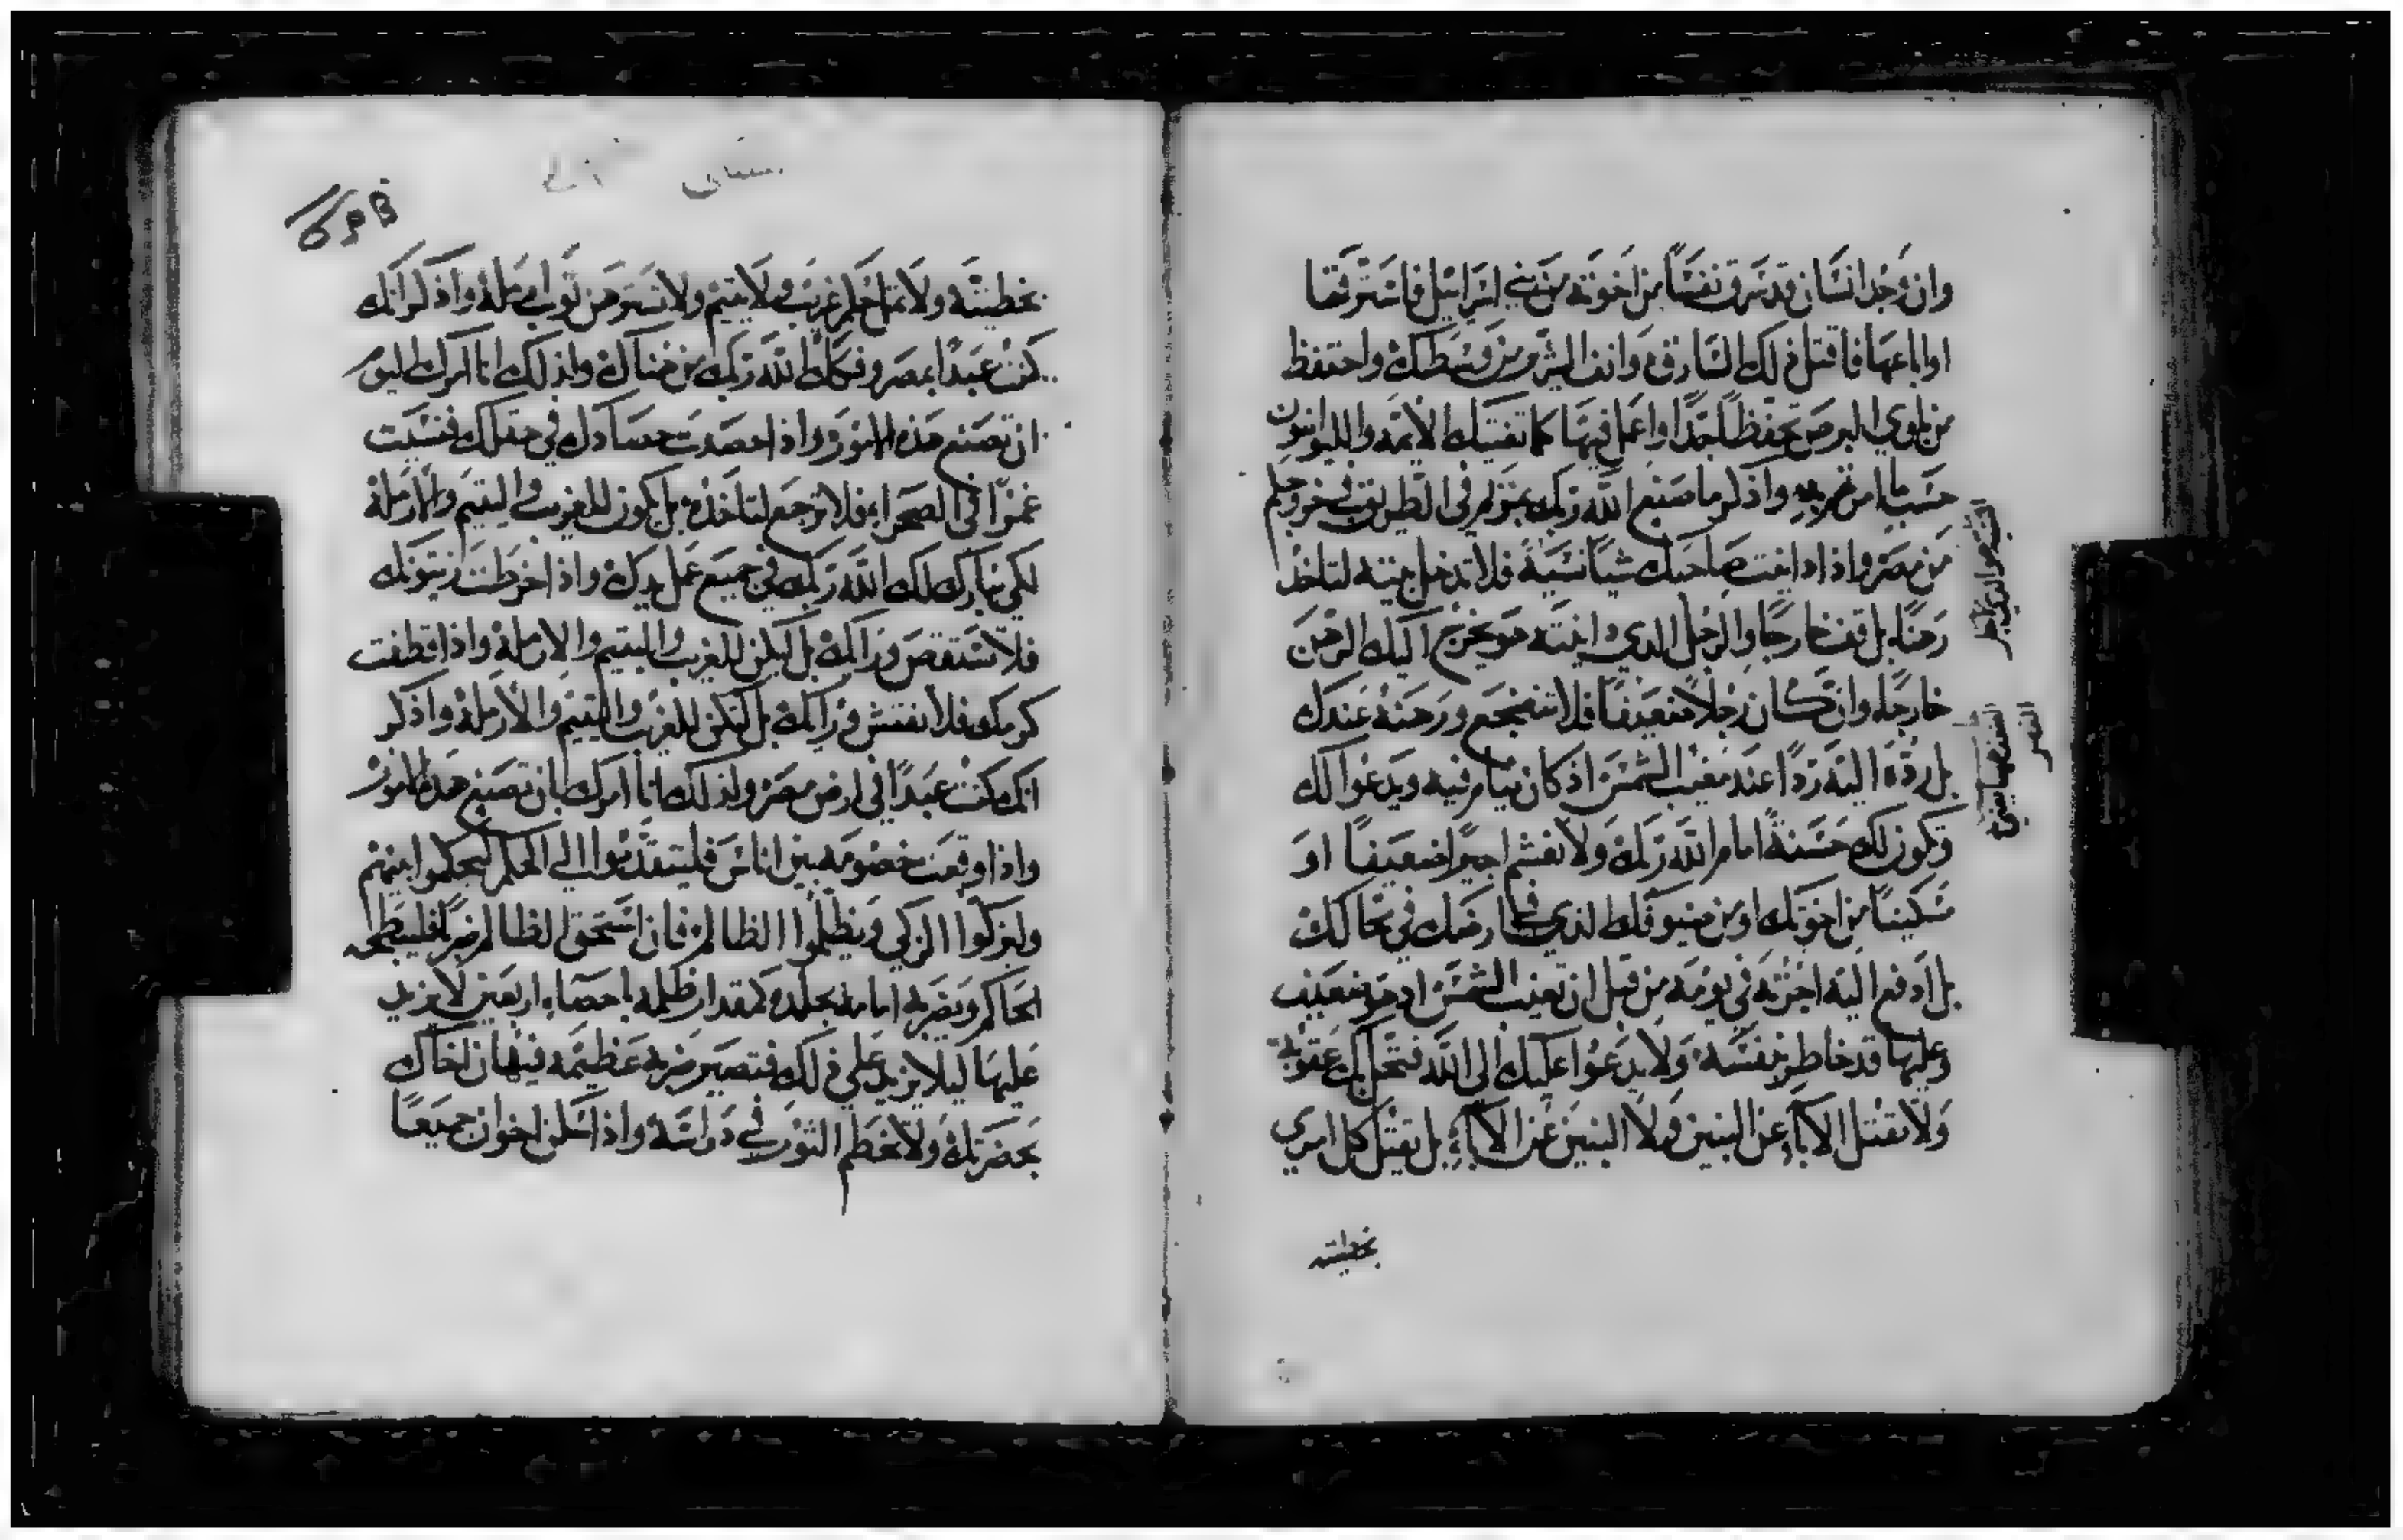 وان وجد انسان قد سرق نفسًا من اخوته من بني اسرائيل فاسترقها
اوباعها فاقتل ذلك السارق وانف الشر من وسطك واحتفظ
من بلوي البرص تحفظًا جدًا واعمل فيها كما تفتيك الائمة والليوانيون
حسب ما امرتهم به واذكر ما صنع الله ربك بمريم في الطريق في خروجكم
من مصر واذا داينت صاحبك شيا نسية فلا تدخل بيته لتاخذ
رهنًا بل قف خارجًا والرجل الذي داينته هو يخرج اليك الرهن
خارجًا وان كان رجلاً ضعيفًا فلا تنضجع ورهنه عندك
بل رده اليه ردًا عند مغيب الشمس اذ كان ينام فيه ويدعوا لك
وتكون لك حسنةً امام الله ربك ولا تغشم اجيرًا ضعيفًا او
مسكينًا من اخوتك او من ضيوفك الذي في ارضك في محالك
بل ادفع اليه اجرته في يومه من قبل ان تغيب الشمس اذ هو ضعيف
وعليها قد خاطر بنفسه ولا يدعوا عليك الى الله فتحل بك عقوبة
ولا تقتل الاباء عن البنين ولا البنين عن الاباء بل يقتل كل امري
بخطيته
بخطيئته ولا تمل حكم غريب ولا يتيم ولا تسترهن ثوب ارملة واذكر انك
كنت عبدًا بمصر وفكك الله ربك من هناك ولذلك انا امرك اليوم
ان تصنع هذه الامور واذا حصدت حصادك في حقلك فنسيت
غمرًا في الصحرا فلا ترجع لتاخذه بل يكون للغريب واليتيم والارملة
لكي يبارك لك الله ربك في جميع عمل يدك واذا خرطت زيتونك
فلا تستقص وراك بل ليكن للغريب واليتيم والارملة واذا قطفت
كرمك فلا تفتش وراك بل ليكن للغريب واليتيم والارملة واذكر
انك كنت عبدًا في ارض مصر ولذلك انا امرك بان تصنع هذه الامور
واذا وقعت خصومة بين اناس فليتقدموا الي الحكم ليحكموا بينهم
وليزكوا الزكي ويظلموا الظالم فان استحق الظالم ضربًا فليبطحه
الحاكم ويضربه امامه بجلده كمقدار ظلمه باحصاء اربعين لا يزيد
عليها ليلا يزيد علي ذلك فتصير ضربة عظيمة فيهان اخاك
بحضرتك ولا تخطم الثور في دراسه واذا سكن اخوان جميعًا